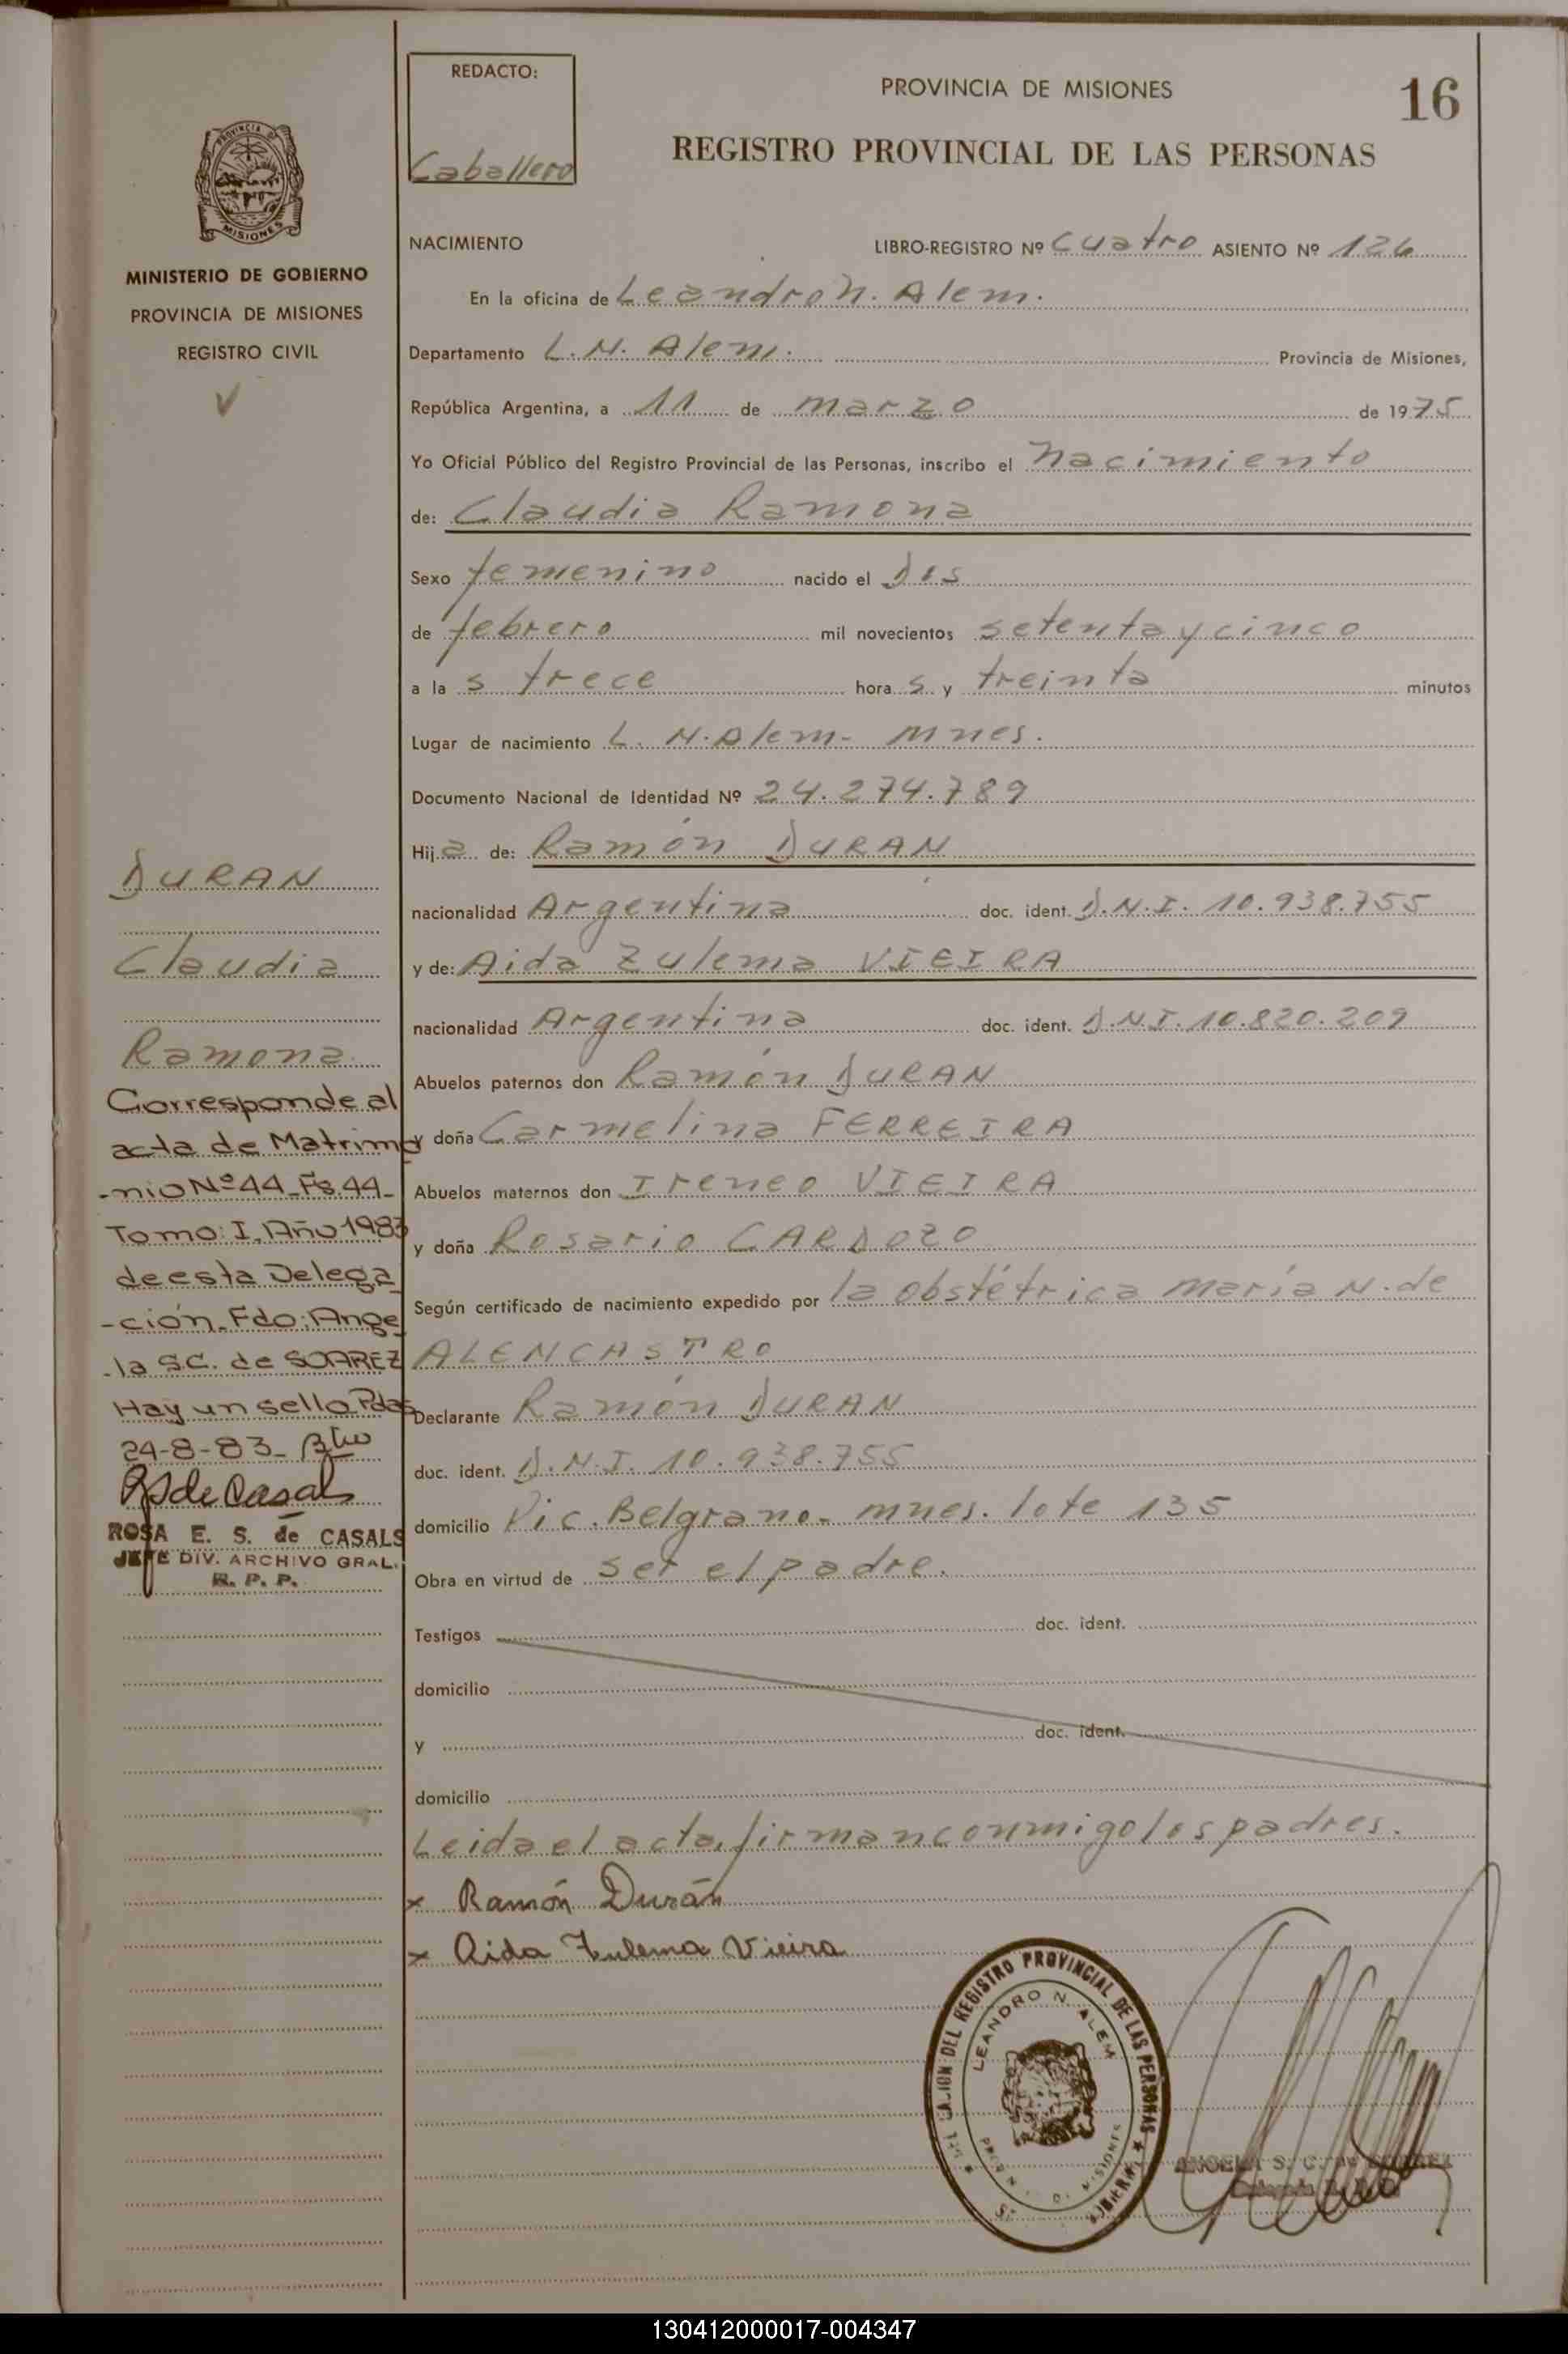 REDACTO:
Caballero
PROVINCIA DE MISIONES
16
REGISTRO PROVINCIAL DE LAS PERSONAS
PROVINCIA DE
MISIONES
MINISTERIO DE GOBIERNO
PROVINCIA DE MISIONES
REGISTRO CIVIL
NACIMIENTO LIBRO-REGISTRO Nº Cuatro ASIENTO Nº 126
En la oficina de Leandro N. Alem.
Departamento L. N. Alem. Provincia de Misiones,
República Argentina, a 11 de marzo de 1975
Yo Oficial Público del Registro Provincial de las Personas, inscribo el nacimiento
de: Claudia Ramona
Sexo femenino nacido el Dos
de febrero mil novecientos setenta y cinco
a la s trece hora s y treinta minutos
Lugar de nacimiento L. N. Alem- Mnes.
Documento Nacional de Identidad Nº 24.274.789
Hij a de: Ramón DURAN
nacionalidad Argentina doc. ident. D.N.I. 10.938.755
y de: Aida Zulema VIEIRA
nacionalidad Argentina doc. ident. D.N.I. 10.820.209
Abuelos paternos don Ramón DURAN
y doña Carmelina FERREIRA
Abuelos maternos don Ireneo VIEIRA
y doña Rosario CARDOZO
Según certificado de nacimiento expedido por la obstétrica María N. de
ALENCASTRO
Declarante Ramón DURAN
doc. ident. D.N.I. 10.938.755
domicilio Pic. Belgrano- mnes. lote 135
Obra en virtud de ser el padre.
Testigos doc. ident.
domicilio
y doc. ident.
domicilio
Leida el acta, firman conmigo los padres.
x Ramón Durán
x Aida Zulema Vieira
DURAN
Claudia
Ramona
Corresponde al
acta de Matrimo
-nio Nº 44_Fs. 44_
Tomo: I, Año 1983
de esta Delega
-ción_Fdo: Ange
-la S.C. de SOAREZ
Hay un sello Pdas
24-8-83_
RSde Casals
ROSA E. S. de CASALS
JEFE DIV. ARCHIVO GRAL.
R. P. P.
DELEGACION DEL REGISTRO PROVINCIAL DE LAS PERSONAS
LEANDRO N. ALEM
MISIONES
ANGELA S. C. de
130412000017-004347